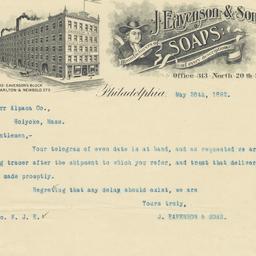 J. Eavenson & Sons
SOAPS.
Office 313 North 20th
EAVENSON'S BLOCK
CARLTON & NEWBOLD STS
Philadelphia, May 20th, 1892.
rr Alpaca Co.,
Holyoke, Mass.
entlemen,-
Your telegram of even date is at hand, and as requested we ar
ng tracer after the shipment to which you refer, and trust that deliver
made promptly.
Regreting that any delay should exist, we are
Yours truly,
J. EAVENSON & SONS.